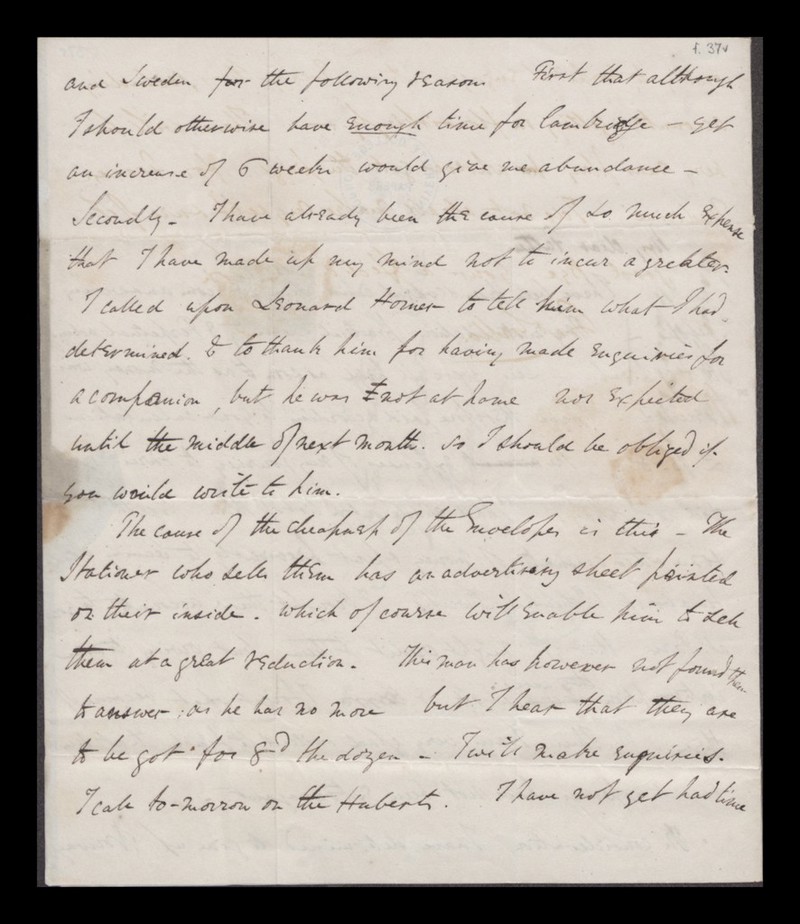 f. 37v
and Sweden for the following reasons First that although
I should otherwise have enough time for Cambridge - yet
an increase of 6 weeks would give me abundance -
Secondly - I have already been the cause of so much expense
that I have made up my mind not to incur a greater.
I called upon Leonard Horner to tell him what I had
determined. & to thank him for having made enquiries for
a companion, but he was not at home nor expected
until the middle of next month. so I should be obliged if
you would write to him.
The cause of the cheapness of the Envelopes is this - The
Stationer who sells them has an advertising sheet printed
on their inside. which of course will enable him to sell
them at a great reduction. This man has however not found them
to answer, as he has no more but I hear that they are
to be got for 8d the dozen - I will make enquiries.
I call to-morrow on the Huberts. I have not yet had time